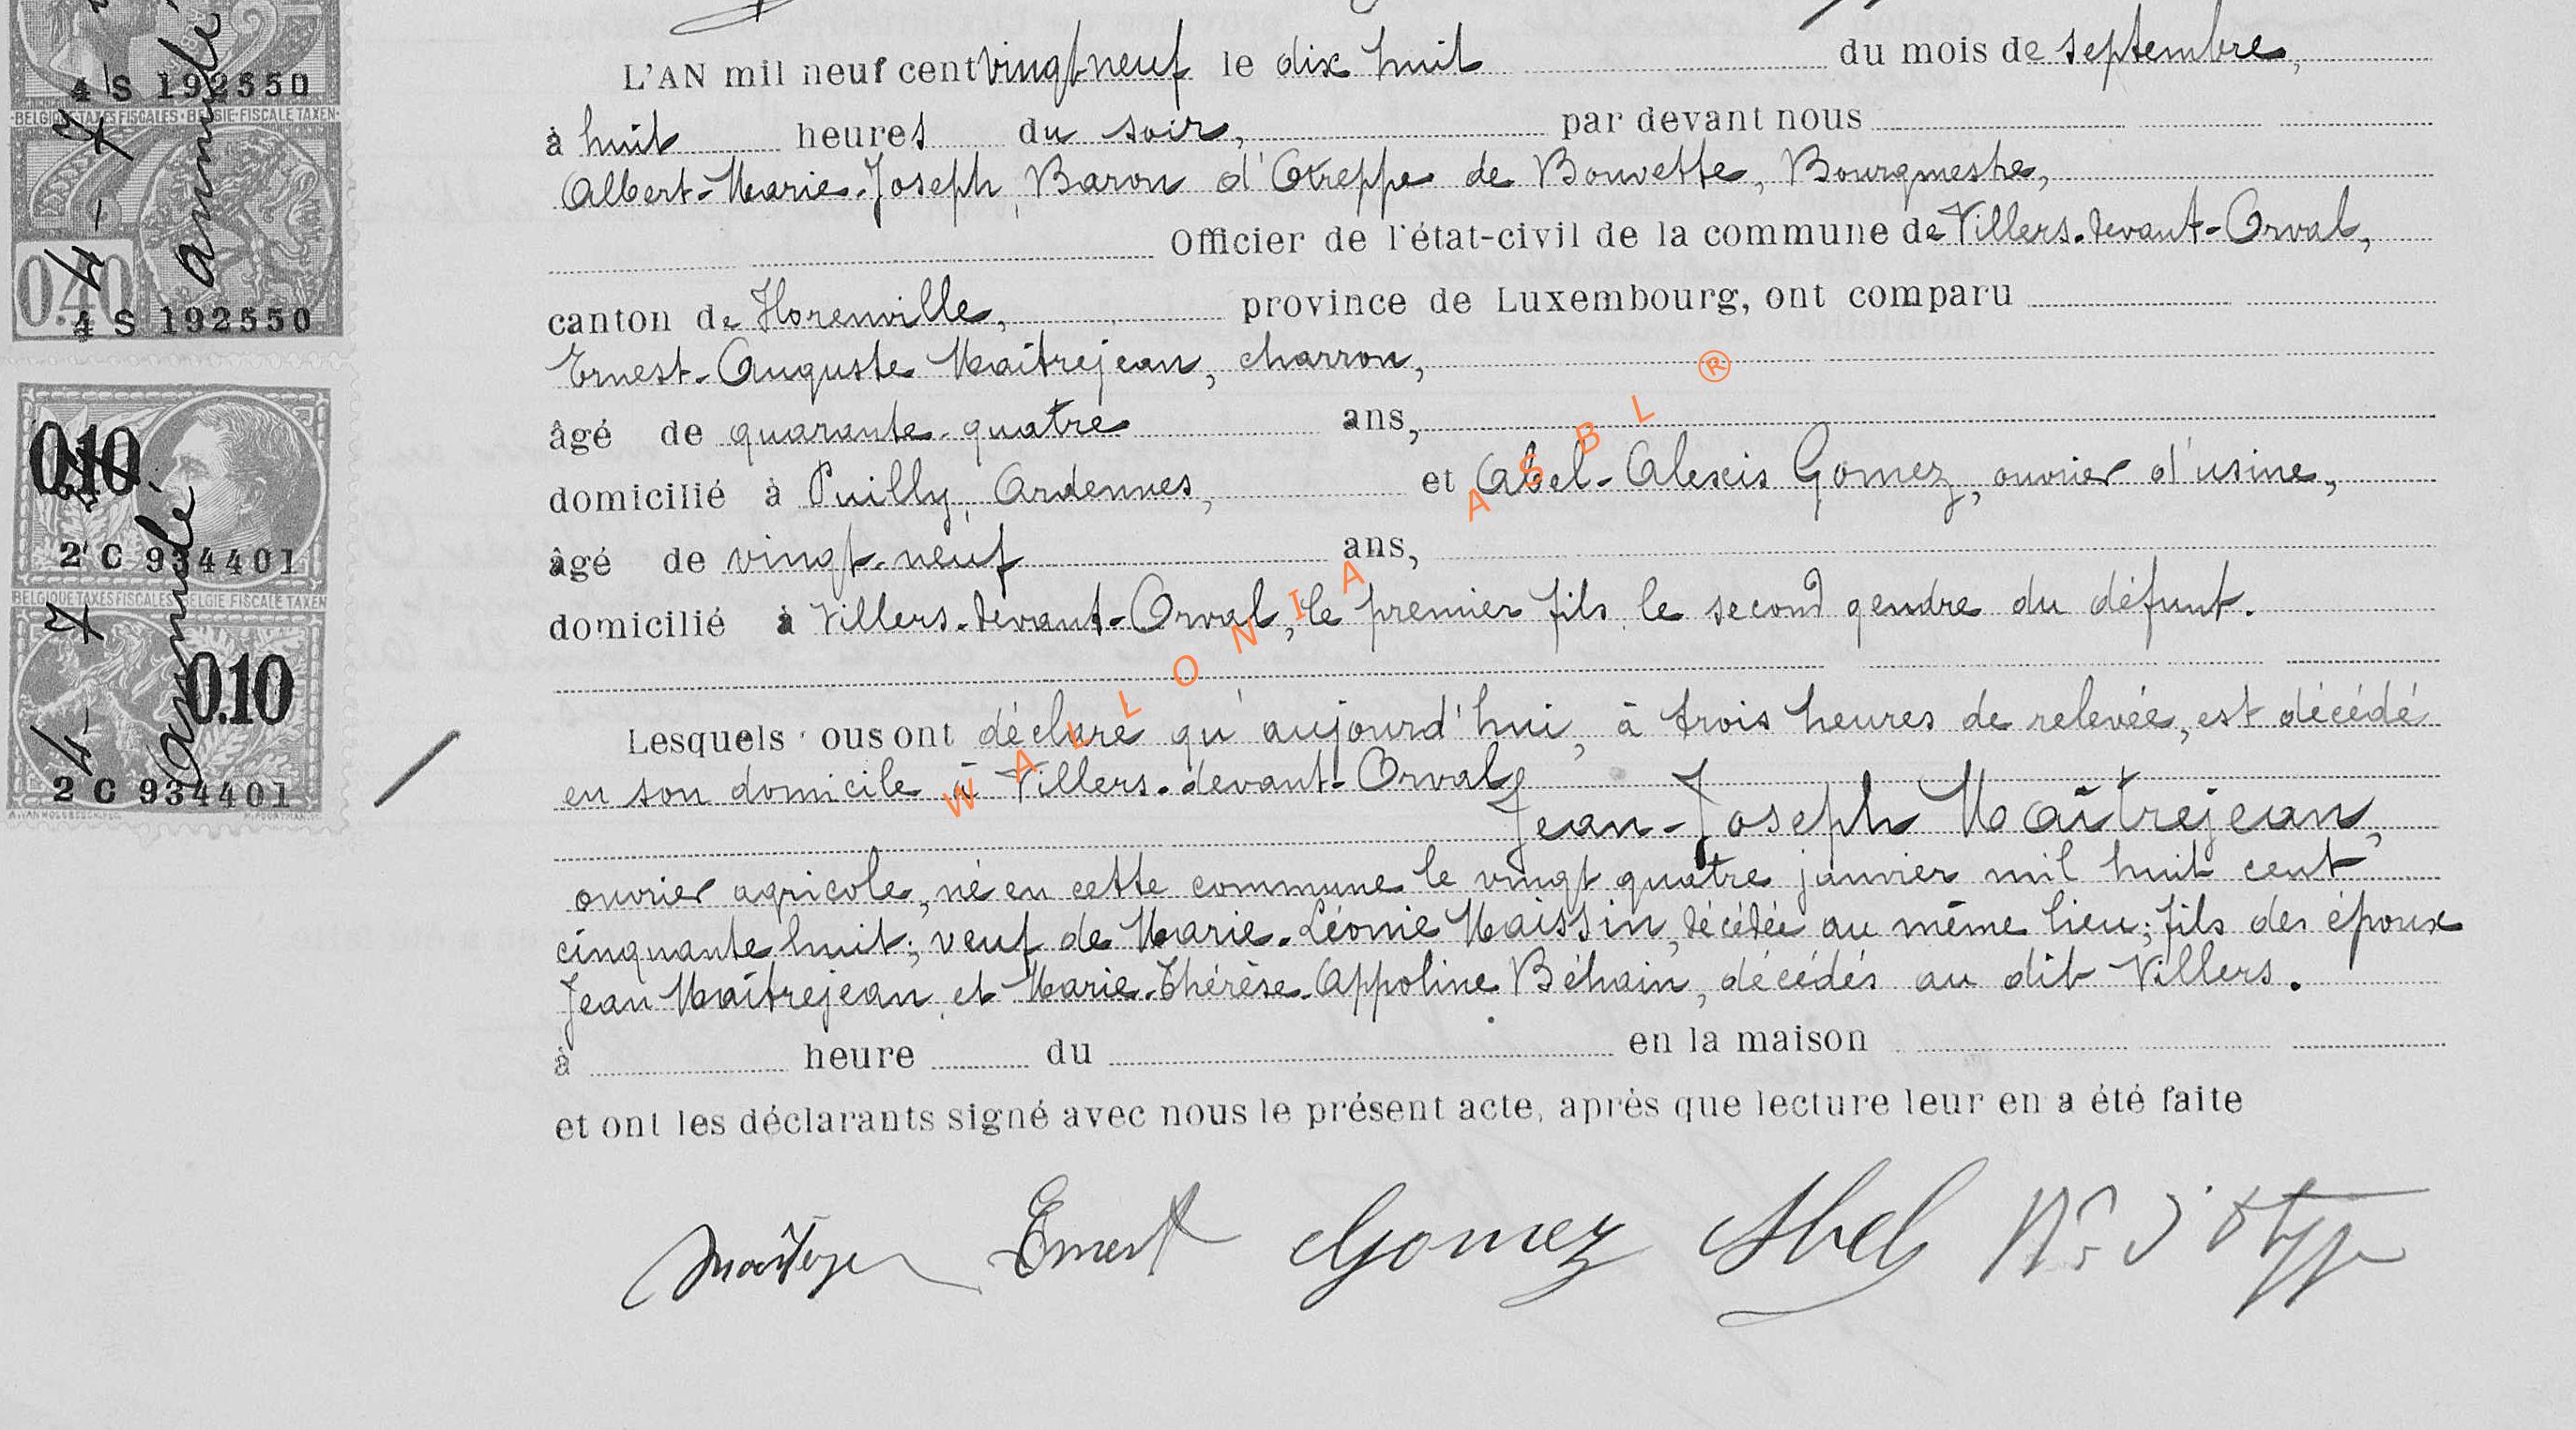 4 S 192550
BELGIQUE TAXES FISCALES · BELGIE FISCALE TAXEN
0.40
4 S 192550
annulé
0.10
2 C 934401
BELGIQUE TAXES FISCALES BELGIE FISCALE TAXEN
0.10
2 C 934401
annulé
L'AN mil neuf cent vingt neuf le dix huit du mois de septembre,
à huit heures du soir, par devant nous
Albert-Marie-Joseph, Baron d'Otreppe de Bouvette, Bourgmestre,
Officier de l'état-civil de la commune de Villers-devant-Orval,
canton de Florenville, province de Luxembourg, ont comparu
Ernest-Auguste Maîtrejean, charron,
âgé de quarante-quatre ans,
domicilié à Puilly, Ardennes, et Abel-Alexis Gomez, ouvrier d'usine,
âgé de vingt-neuf ans,
domicilié à Villers-devant-Orval, le premier fils, le second gendre du défunt.
Lesquels ous ont déclaré qu'aujourd'hui, à trois heures de relevée, est décédé
en son domicile à Villers-devant-Orval,
Jean-Joseph Maîtrejean,
ouvrier agricole, né en cette commune le vingt quatre janvier mil huit cent
cinquante huit; veuf de Marie-Léonie Maissin, décédée au même lieu; fils des époux
Jean Maîtrejean et Marie-Thérèse-Appoline Béhain, décédés au dit Villers.
à heure du en la maison
et ont les déclarants signé avec nous le présent acte, après que lecture leur en a été faite
Ernest Gomez Abel
WALLONIA ASBL ®